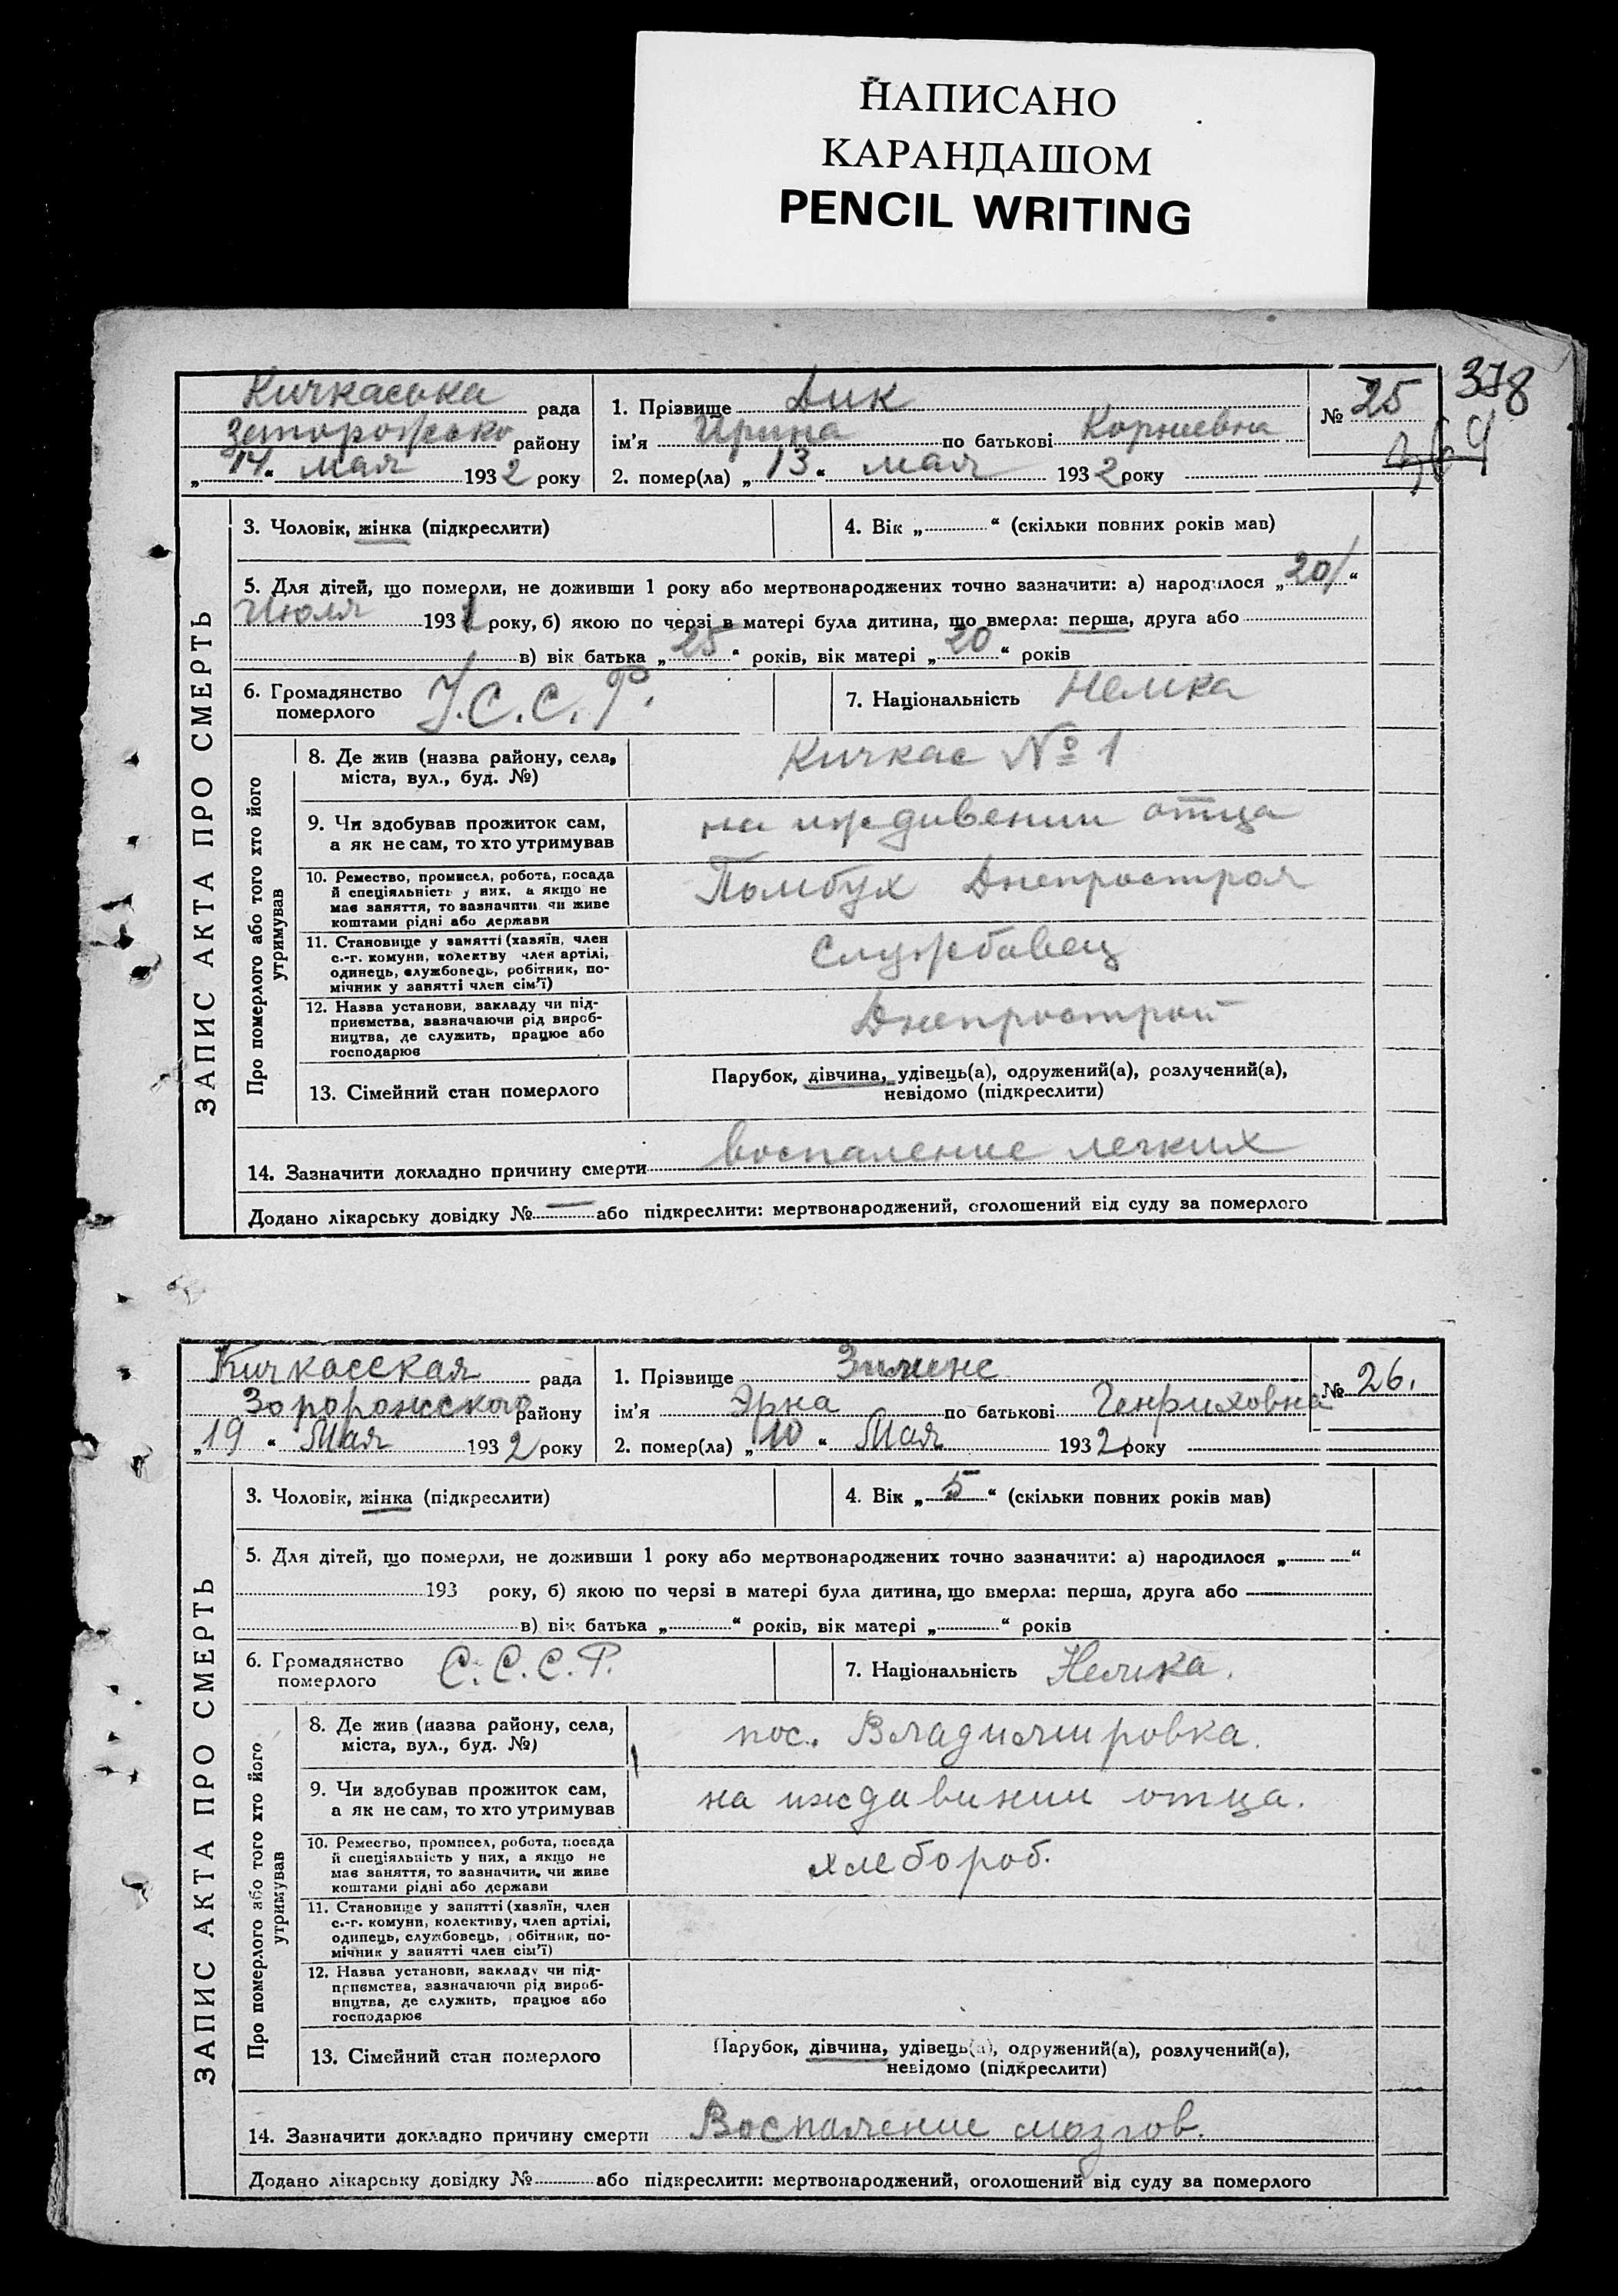 НАПИСАНО
КАРАНДАШОМ
PENCIL WRITING
378
364
Кичкаська рада
Запорожсько району
„14“ мая 1932 року
1. Прізвище Дик
ім’я Ирина по батькові Корниевна
2. помер(ла) „13“ мая 1932 року
№ 25
ЗАПИС АКТА ПРО СМЕРТЬ
3. Чоловік, жінка (підкреслити)
4. Вік „ “ (скільки повних років мав)
5. Для дітей, що померли, не доживши 1 року або мертвонароджених точно зазначити: а) народилося „20“
Июля 1931 року, б) якою по черзі в матері була дитина, що вмерла: перша, друга або
в) вік батька „25“ років, вік матері „20“ років
6. Громадянство
померлого
У.С.С.Р.
7. Національність Немка
Про померлого або того хто його
утримував
8. Де жив (назва району, села,
міста, вул., буд. №)
Кичкас № 1
9. Чи здобував прожиток сам,
а як не сам, то хто утримував
на иждивении отца
10. Ремество, промисел, робота, посада
й спеціяльність у них, а якщо не
має заняття, то зазначити чи живе
коштами рідні або держави
Помбух Днепростроя
11. Становище у занятті (хазяїн, член
с.-г. комуни, колектву член артілі,
одинець, службовець, робітник, по-
мічник у занятті член сім’ї)
Службовец
12. Назва установи, закладу чи під-
приємства, зазначаючи рід вироб-
ництва, де служить, працює або
господарює
Днепрострой
13. Сімейний стан померлого
Парубок, дівчина, удівець(а), одружений(а), розлучений(а),
невідомо (підкреслити)
14. Зазначити докладно причину смерти воспаление легких
Додано лікарську довідку № — або підкреслити: мертвонароджений, оголошений від суду за померлого
Кичкасская рада
Зопорожского району
„19“ Мая 1932 року
1. Прізвище Зименс
ім’я Эрна по батькові Генриховна
2. помер(ла) „10“ Мая 1932 року
№ 26.
ЗАПИС АКТА ПРО СМЕРТЬ
3. Чоловік, жінка (підкреслити)
4. Вік „5“ (скільки повних років мав)
5. Для дітей, що померли, не доживши 1 року або мертвонароджених точно зазначити: а) народилося „ “
193 року, б) якою по черзі в матері була дитина, що вмерла: перша, друга або
в) вік батька „ “ років, вік матері „ “ років
6. Громадянство
померлого
С.С.С.Р.
7. Національність Немка.
Про померлого або того хто його
утримував
8. Де жив (назва району, села,
міста, вул., буд. №)
пос. Владимировка.
9. Чи здобував прожиток сам,
а як не сам, то хто утримував
на иждивинии отца.
10. Ремество, промисел, робота, посада
й спеціяльність у них, а якщо не
має заняття, то зазначити, чи живе
коштами рідні або держави
хлебороб.
11. Становище у занятті (хазяїн, член
с.-г. комуни, колективу, член артілі,
одинець, службовець, робітник, по-
мічник у занятті член сім’ї)
12. Назва установи, закладу чи під-
приємства, зазначаючи рід вироб-
ництва, де служить, працює або
господарює
13. Сімейний стан померлого
Парубок, дівчина, удівець(а), одружений(а), розлучений(а),
невідомо (підкреслити)
14. Зазначити докладно причину смерти Воспаление мозгов.
Додано лікарську довідку № або підкреслити: мертвонароджений, оголошений від суду за померлого